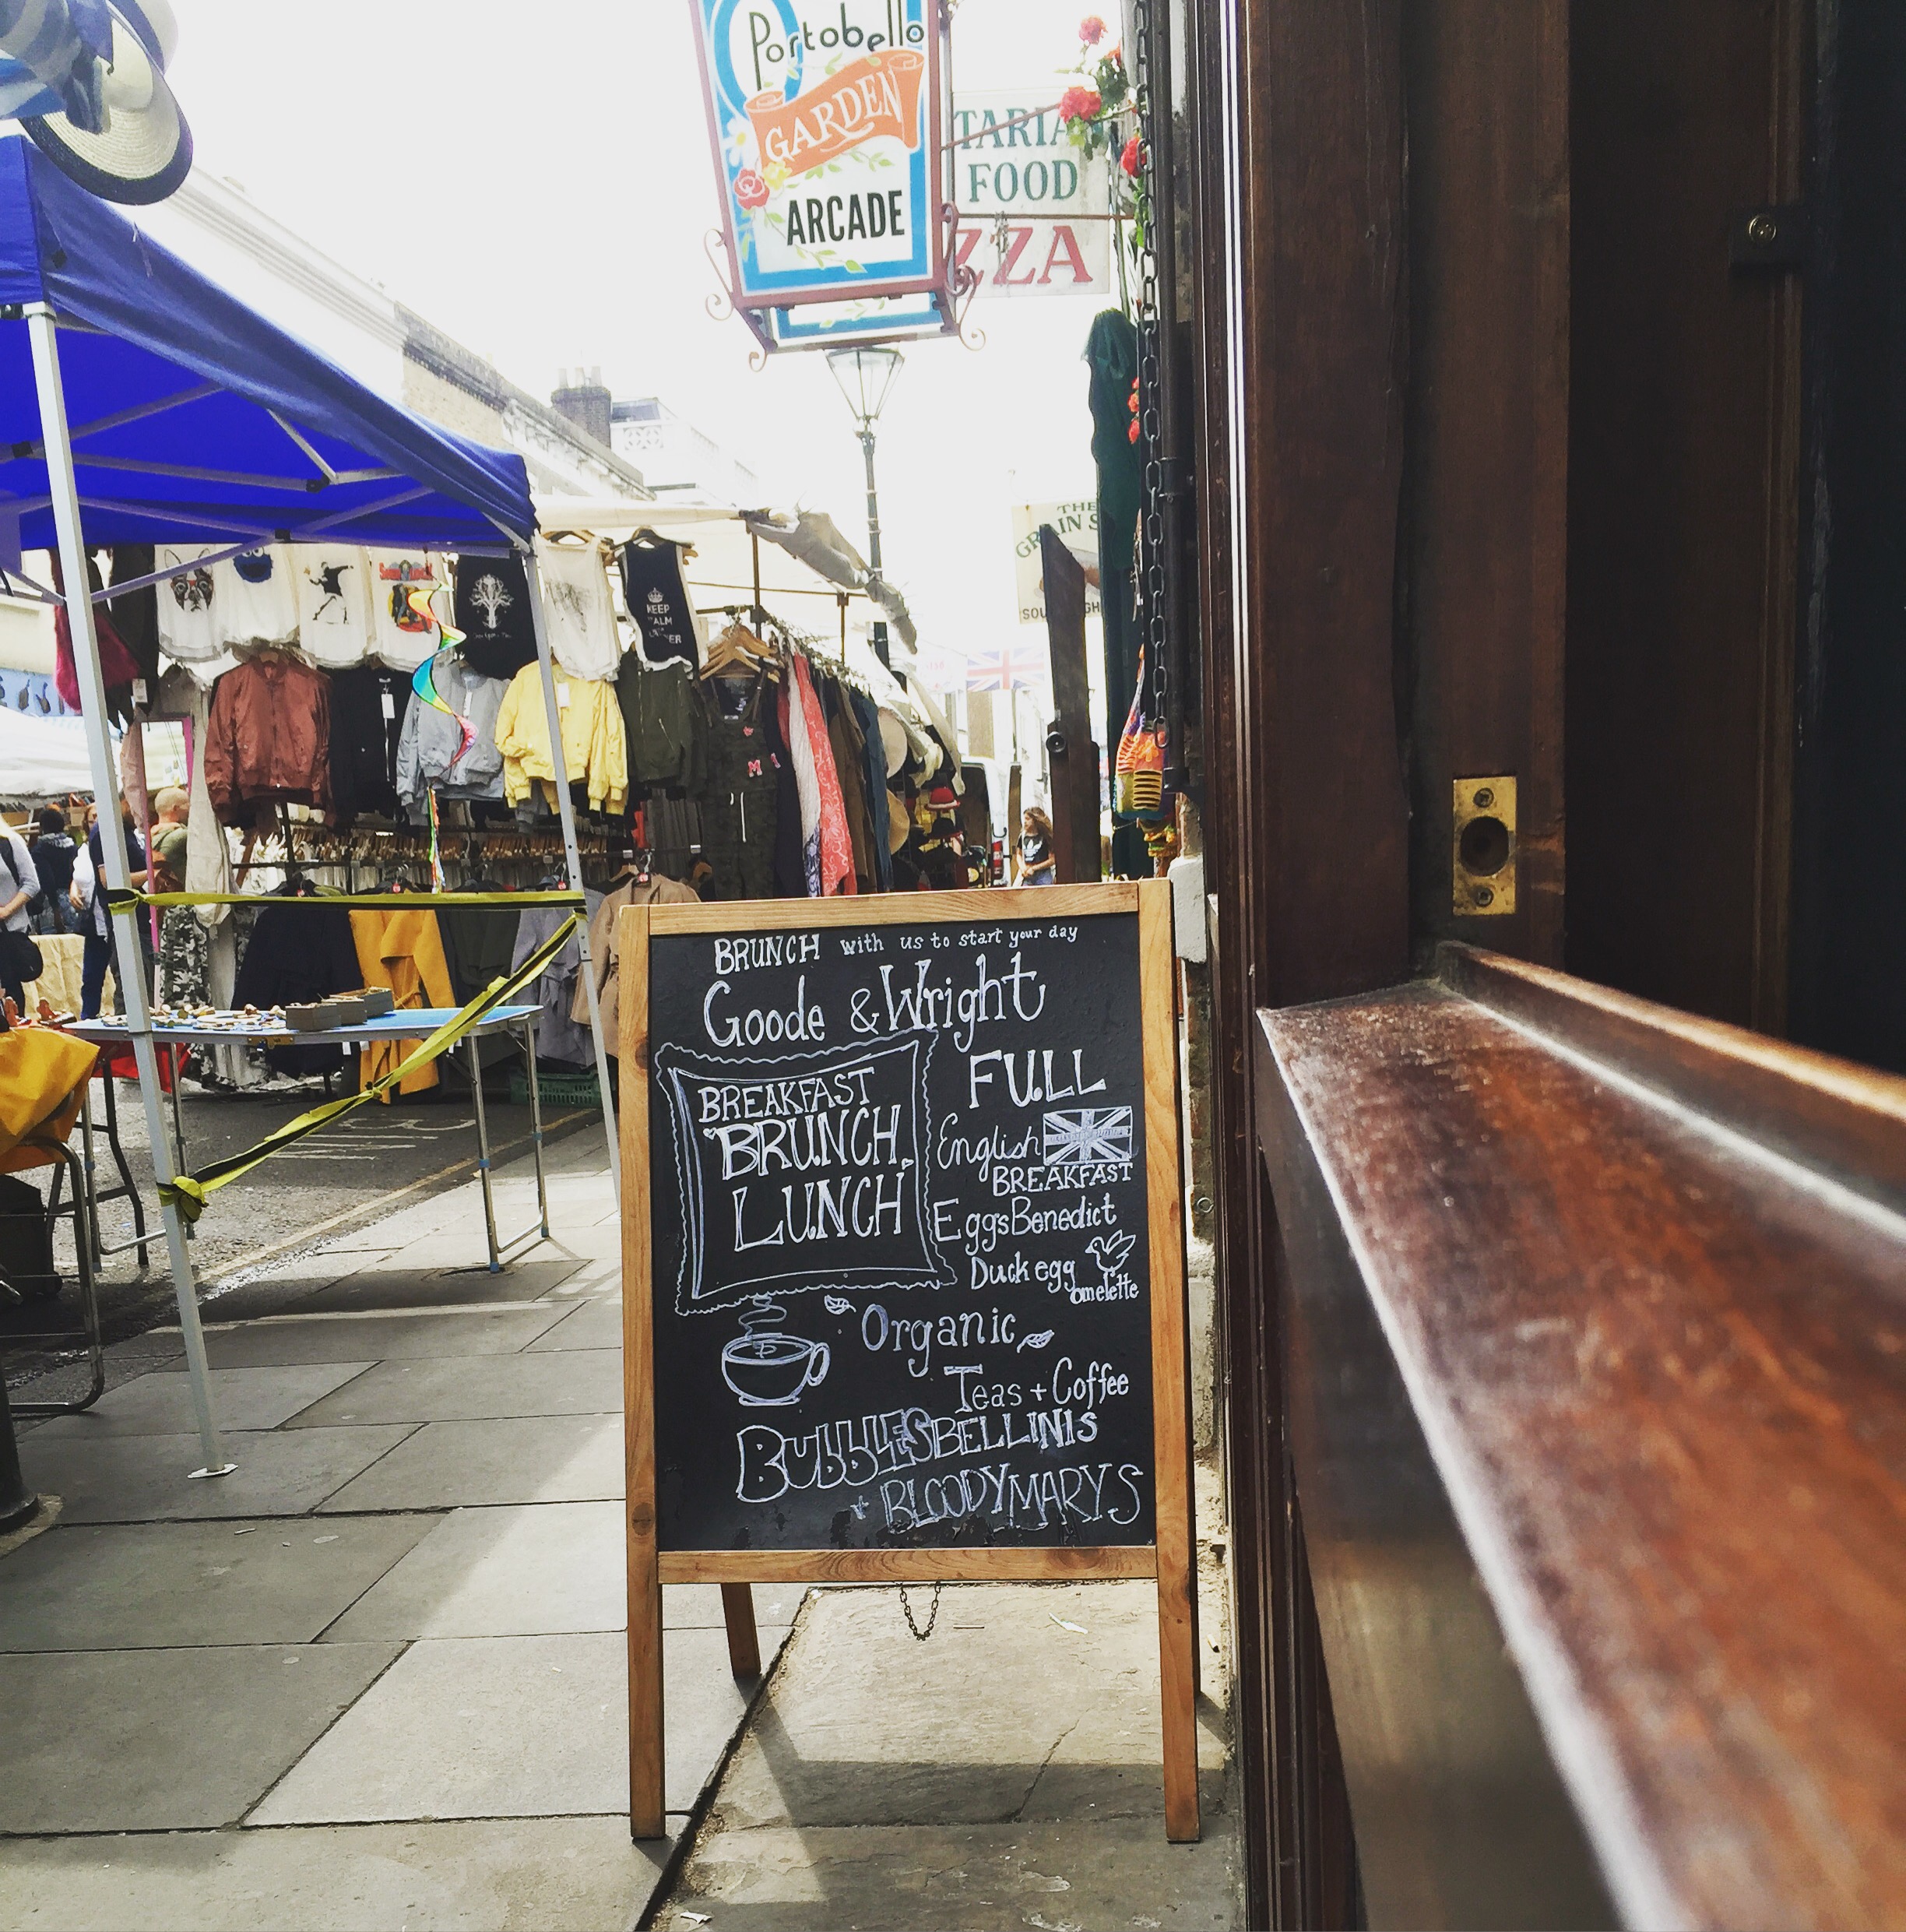 Portobello
GARDEN
ARCADE
TARIAN
FOOD
ZZA
THE
GRAIN S
KEEP
CALM
BRUNCH with us to start your day
Goode & Wright
BREAKFAST
BRUNCH
LUNCH
FULL
English
BREAKFAST
Eggs Benedict
Duck egg
omelette
Organic
Teas + Coffee
BUbbLES BELLINIS
+ BLOODY MARYS